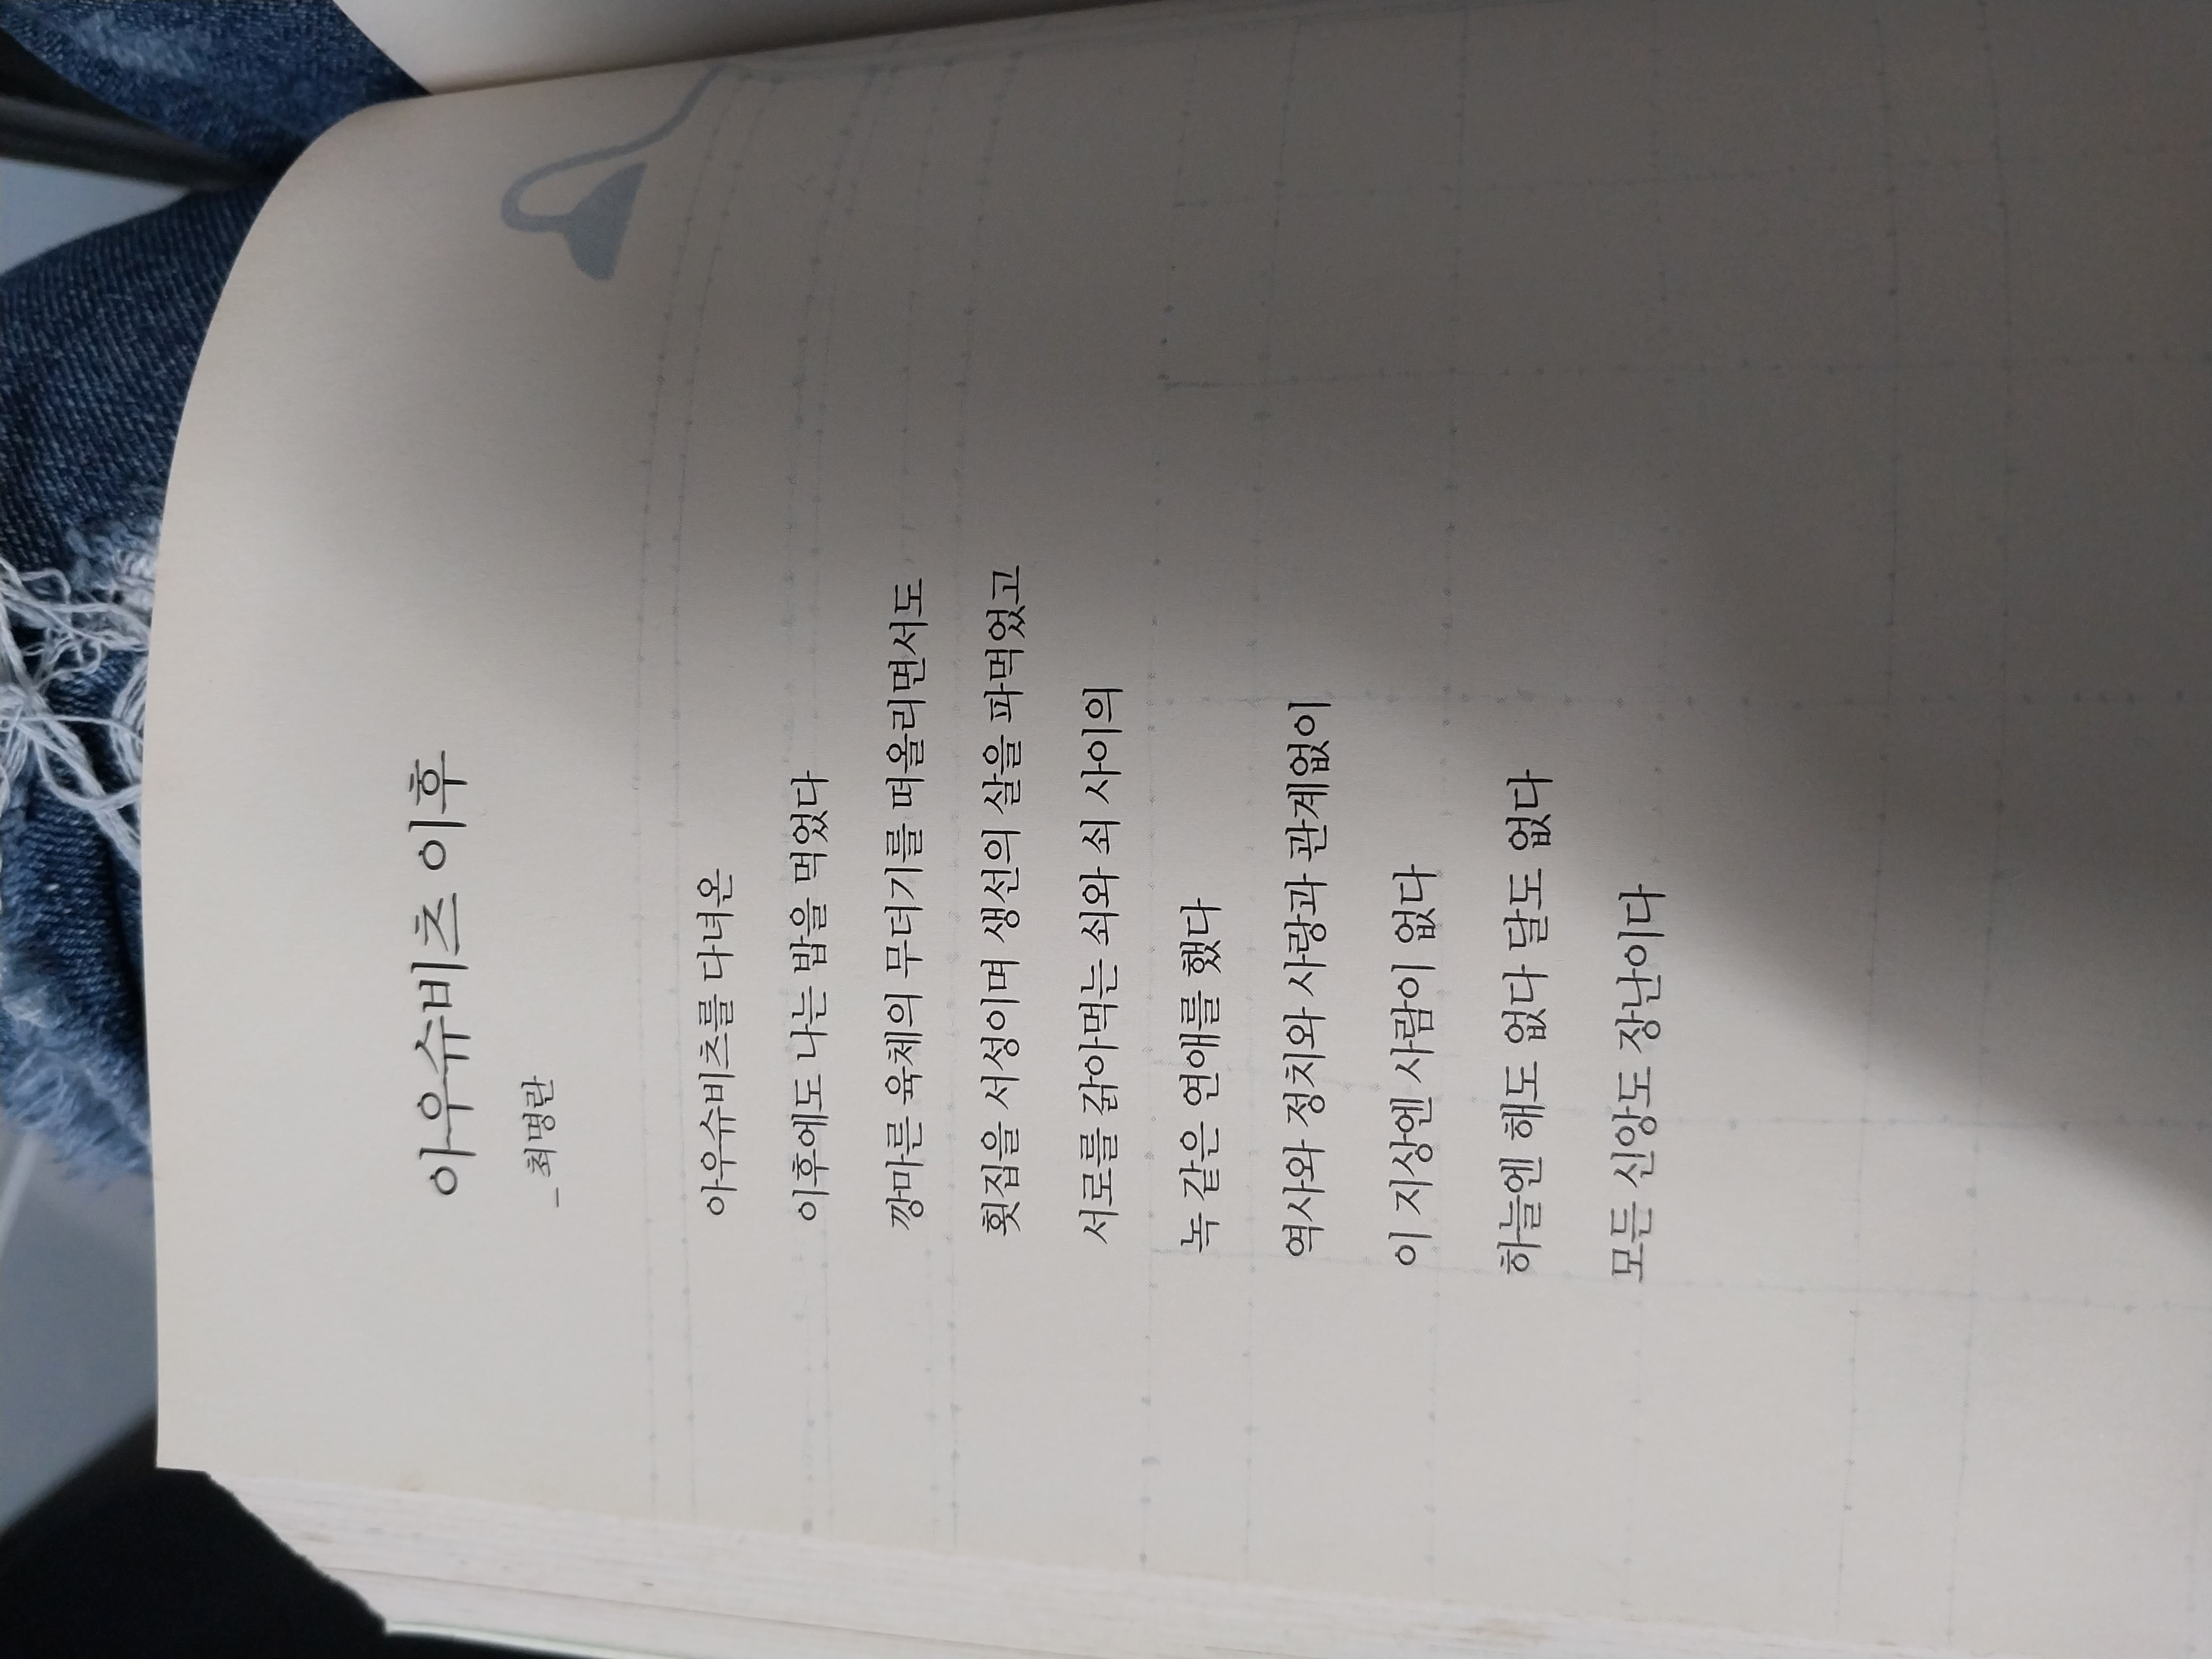 아우슈비츠 이후
_최명란
아우슈비츠를 다녀온
이후에도 나는 밥을 먹었다
깡마른 육체의 무더기를 떠올리면서도
횟집을 서성이며 생선의 살을 파먹었고
서로를 갉아먹는 쇠와 쇠 사이의
녹 같은 연애를 했다
역사와 정치와 사랑과 관계없이
이 지상엔 사람이 없다
하늘엔 해도 없다 달도 없다
모든 신앙도 장난이다